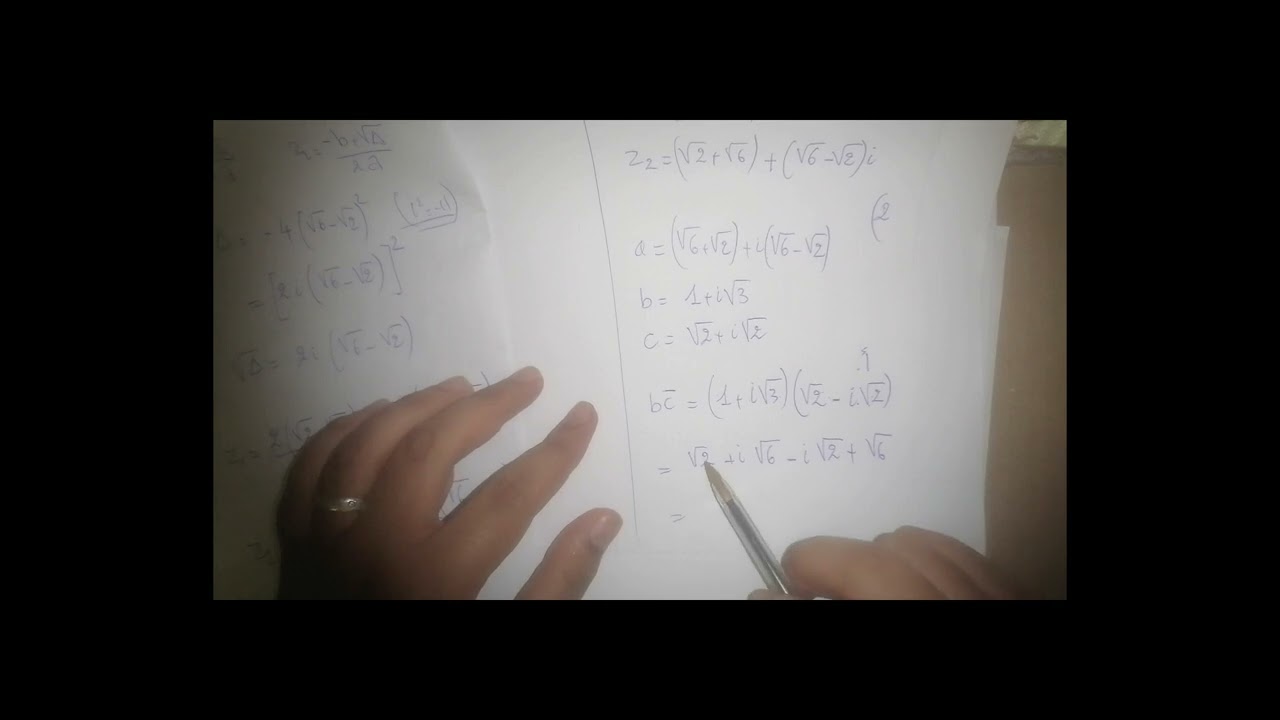 z₁ = (-b+√Δ)/2a
Δ = -4(√6-√2)² (i²=-1)
= [2i(√6-√2)]²
√Δ = 2i(√6-√2)
z₂ = (√2+√6)+(√6-√2)i
(2
a = (√6+√2)+i(√6-√2)
b = 1+i√3
c = √2+i√2
bc̅ = (1+i√3)(√2-i√2)
= √2+i√6-i√2+√6
=